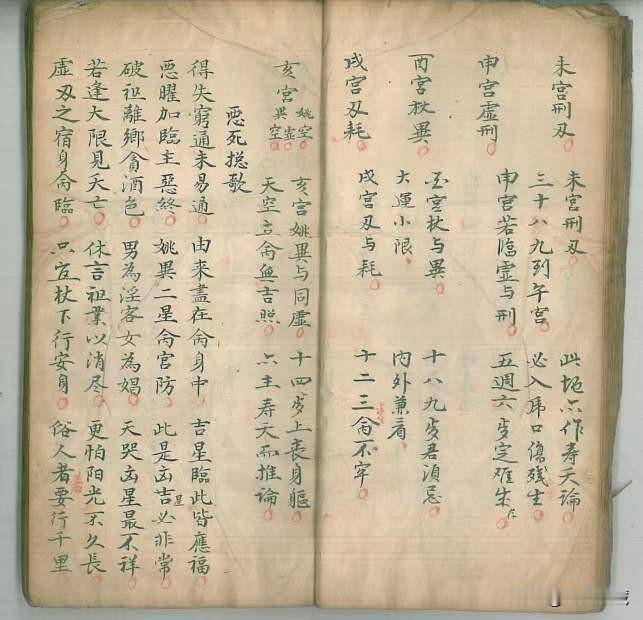 未宮刑刃 未宮刑刃 此地亦作寿夭論
三十八九到午宮 必入虎口傷殘生
申宮虛刑 申宮若臨虛与刑 五週六岁定难生存
酉宮杖異 酉宮杖与異 十八九岁君須忌
大運小限 内外兼看
戌宮刃耗 戌宮刃与耗 十二三命不牢
亥宮姚空異虛空 亥宮姚異与同虛 十四岁上喪身軀
天空立命無吉照 亦主寿夭而推論
惡死捴歌
得失窮通未易通 由來盡在命身中 吉星臨此皆應福
惡曜加臨主惡終 姚異二星命宮防 此是凶吉星必非常
破祖離鄉貪酒色 男為淫客女為娼 天哭凶星最不祥
若逢大限見夭亡 休言祖業以消尽 更怕阳光不久長
虛刃之宿身命臨 只宜杖下行安身 俗人者要行千里